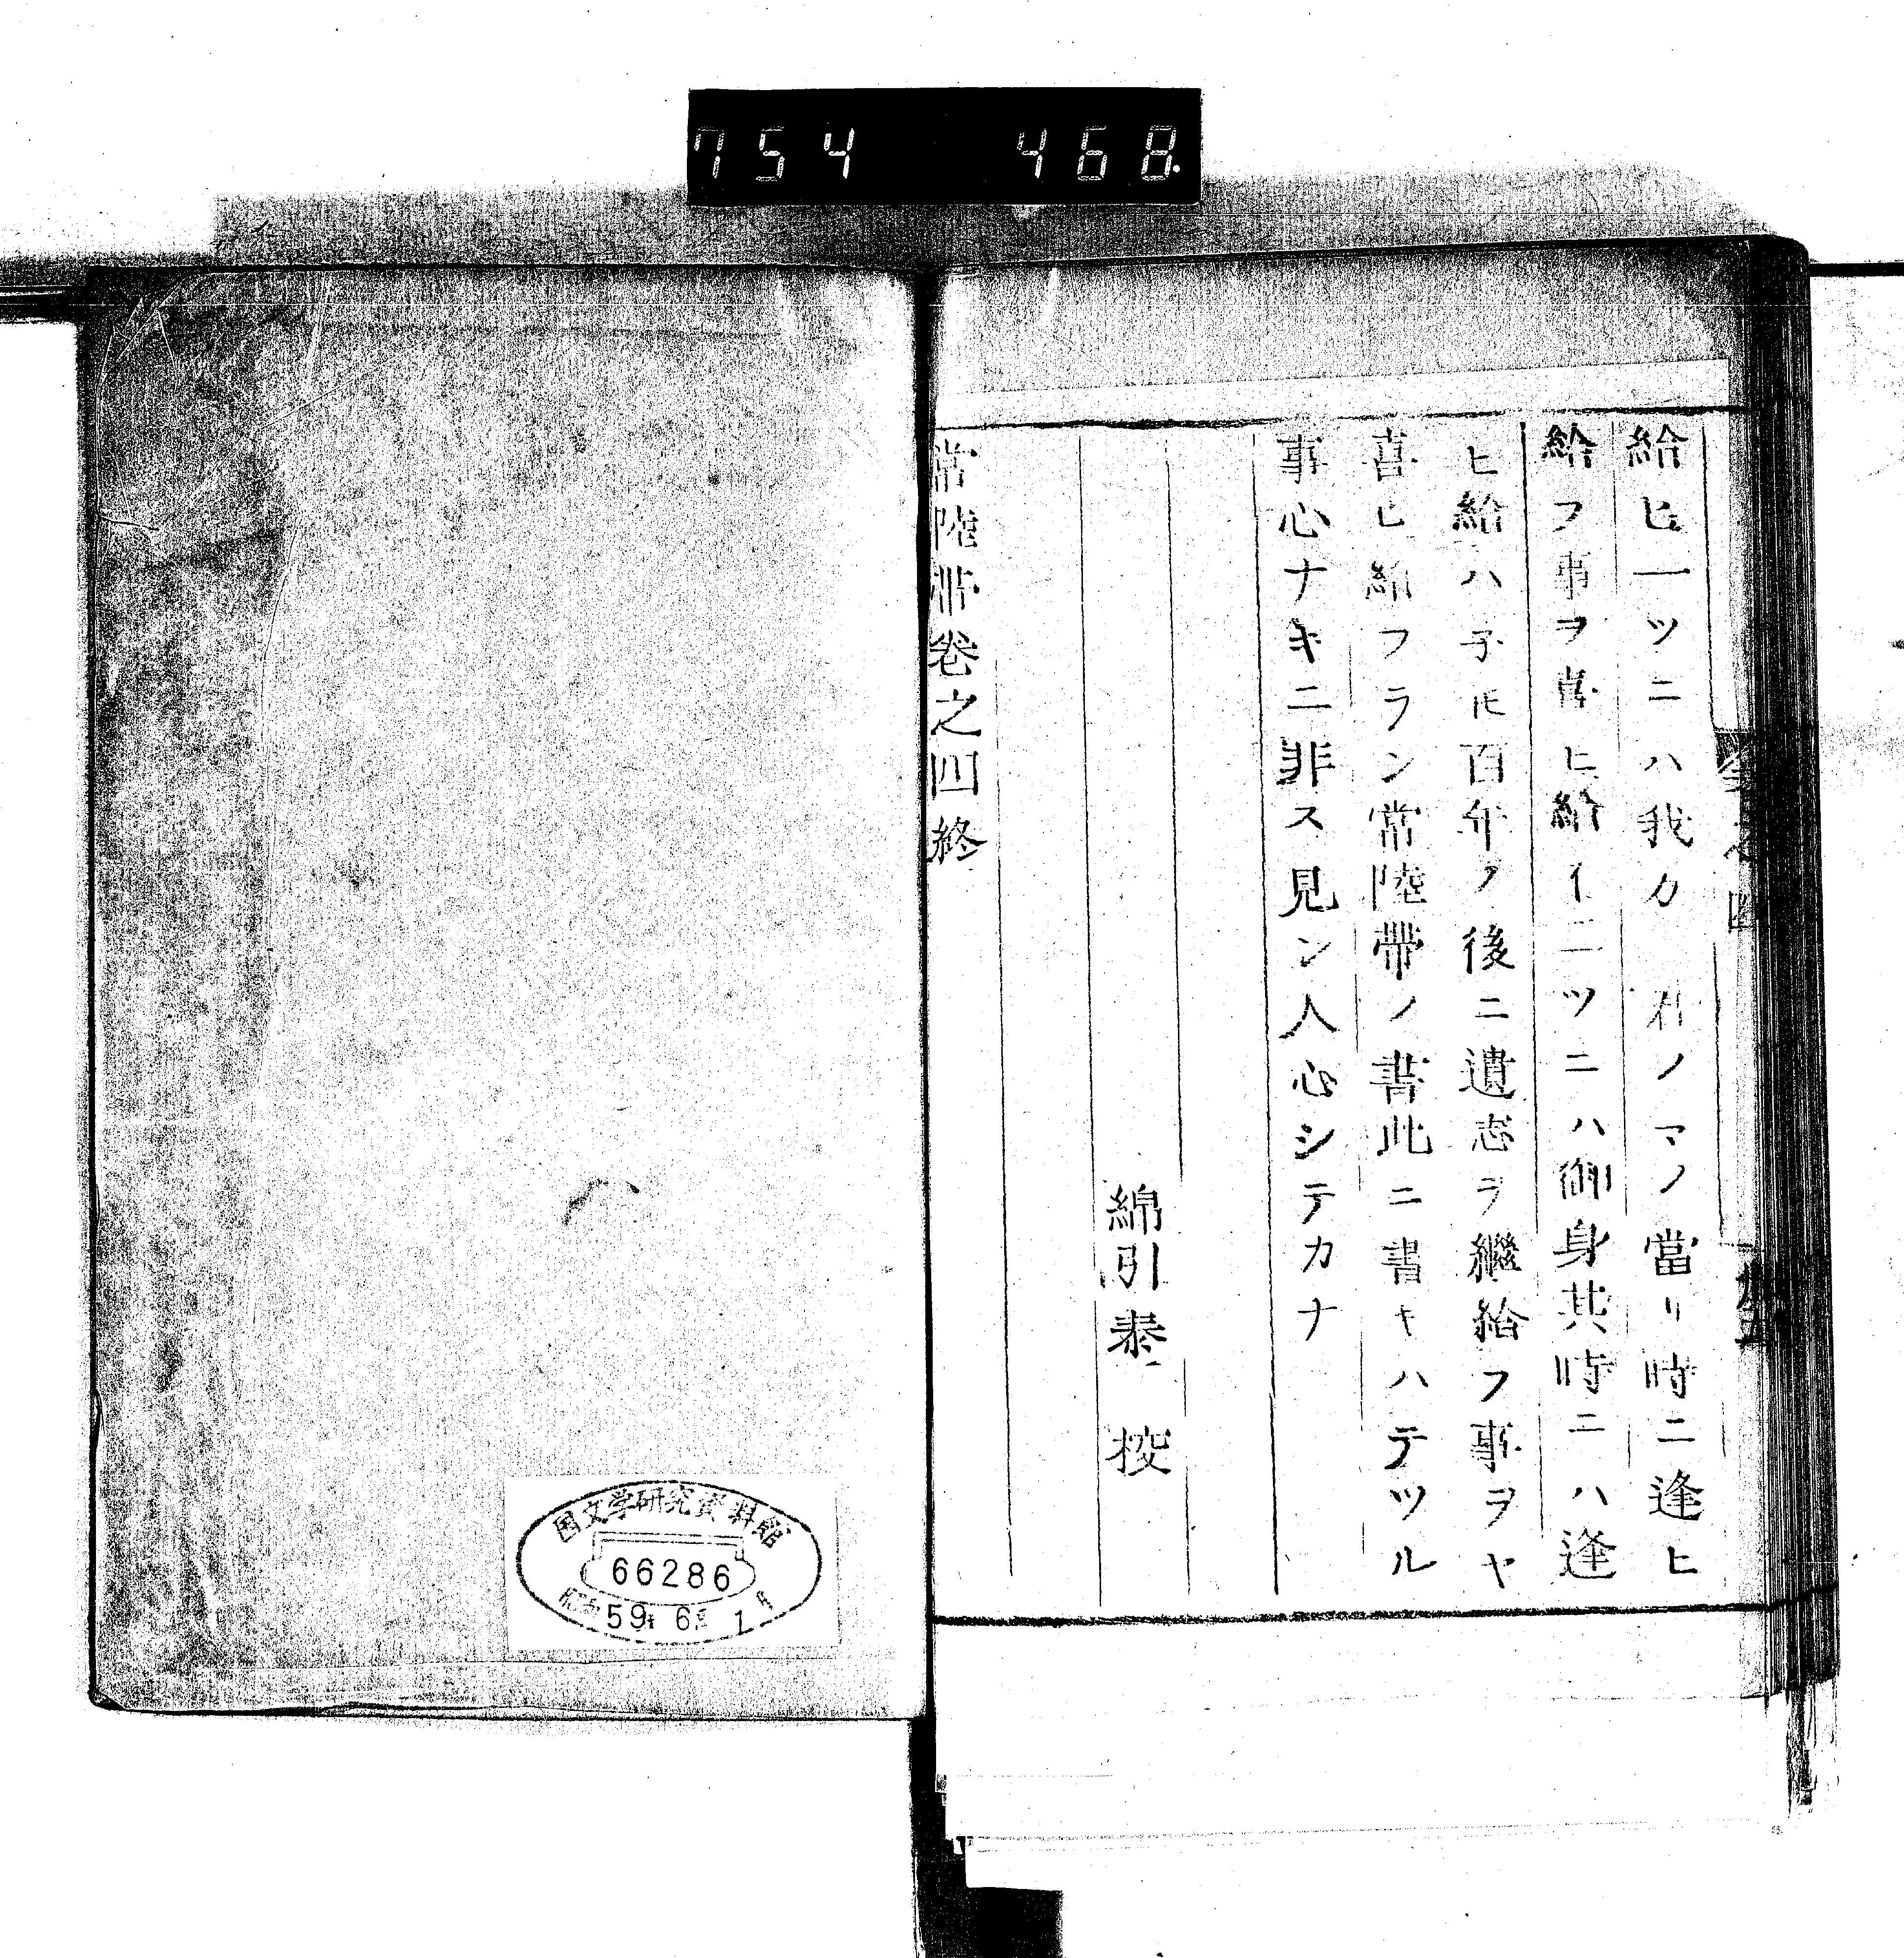 754 468.
給ヒ一ツニハ我カ 君ノマノ當リ時ニ逢ヒ
給フ事ヲ喜ヒ給イ二ツニハ御身其時ニハ逢
ヒ給ハ子𪜈百年ノ後ニ遺志ヲ繼給フ事ヲヤ
喜ヒ給フラン常陸帶ノ書此ニ書キハテツル
事心ナキニ非ス見ン人心シテカナ
綿引泰 挍
常陸帶卷之四終
国文学研究資料館
66286
昭和59年6月1日